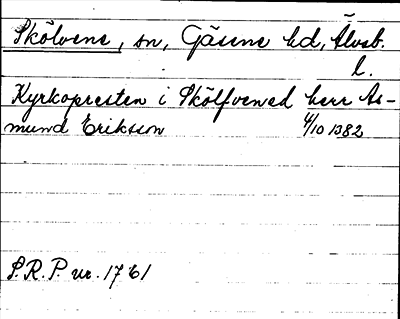 Skölvene, sn, Gäsene hd, Älvsb.
l.
Kyrkopresten i Skölfvened herr As-
mund Eriksson 4/10 1382
S.R.P. nr. 1761